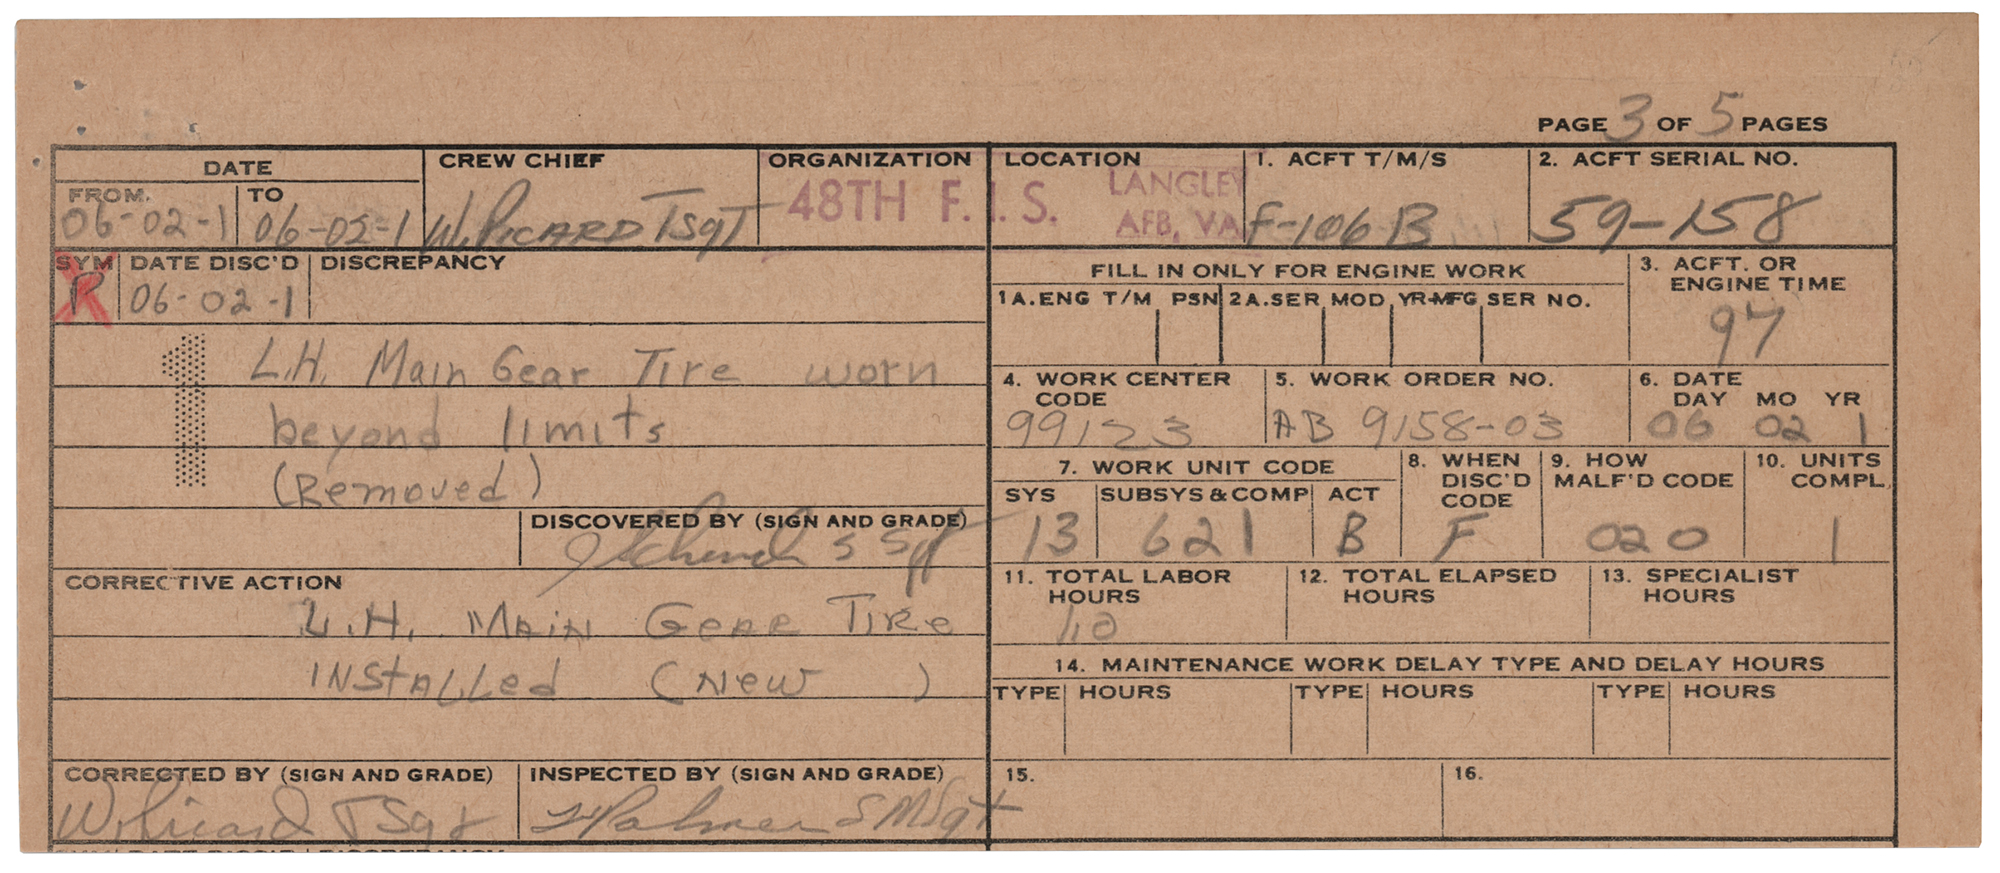 PAGE 3 OF 5 PAGES
DATE
FROM. 06-02-1
TO 06-02-1
CREW CHIEF
W. PICARD TSgT
ORGANIZATION
48TH F.I.S.
LOCATION
LANGLEY
AFB, VA.
1. ACFT T/M/S
F-106B
2. ACFT SERIAL NO.
59-158
SYM
R
DATE DISC'D
06-02-1
DISCREPANCY
1
L.H. Main Gear Tire worn
beyond limits
(Removed)
DISCOVERED BY (SIGN AND GRADE)
S Sgt
CORRECTIVE ACTION
L.H. MAIN GEAR TIRE
INSTALLed (NEW )
CORRECTED BY (SIGN AND GRADE)
W. Picard TSgt
INSPECTED BY (SIGN AND GRADE)
Palmer SMSgt
FILL IN ONLY FOR ENGINE WORK
1A. ENG T/M PSN 2A. SER MOD YR-MFG SER NO.
3. ACFT. OR
ENGINE TIME
97
4. WORK CENTER
CODE
99123
5. WORK ORDER NO.
AB 9158-03
6. DATE
DAY MO YR
06 02 1
7. WORK UNIT CODE
SYS SUBSYS & COMP ACT
13 621 B
8. WHEN
DISC'D
CODE
F
9. HOW
MALF'D CODE
020
10. UNITS
COMPL.
1
11. TOTAL LABOR
HOURS
12. TOTAL ELAPSED
HOURS
13. SPECIALIST
HOURS
14. MAINTENANCE WORK DELAY TYPE AND DELAY HOURS
TYPE HOURS TYPE HOURS TYPE HOURS
15.
16.
SYM DATE DISC'D DISCREPANCY